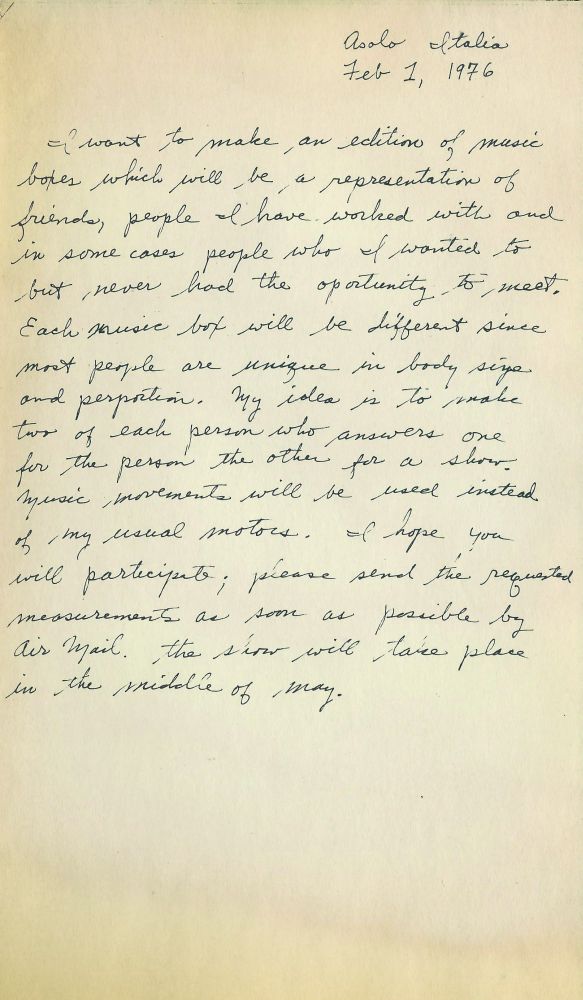 Asolo Italia
Feb 1, 1976
I want to make an edition of music
boxes which will be a representation of
friends, people I have worked with and
in some cases people who I wanted to
but never had the oportunity to meet.
Each music box will be different since
most people are unique in body size
and perportion. My idea is to make
two of each person who answers one
for the person the other for a show.
Music movements will be used instead
of my usual motors. I hope you
will participate; please send the requested
measurements as soon as possible by
Air Mail. The show will take place
in the middle of may.